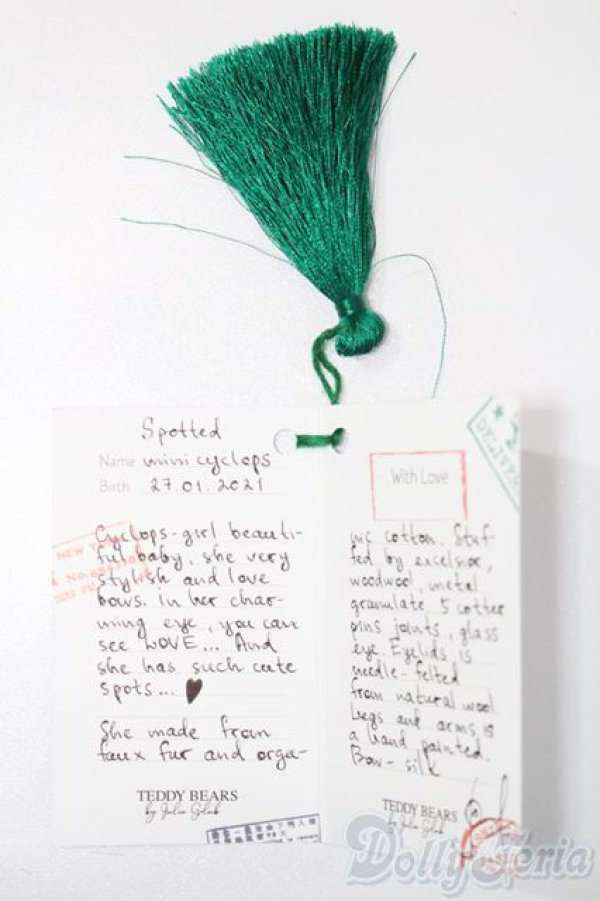 Spotted
Name mini cyclops
Birth 27.01.2021
Cyclops-girl beauti-
ful baby, she very
stylish and love
bows. in her char-
ming eye, you can
see LOVE... And
she has such cute
spots...
She made from
faux fur and orga-
TEDDY BEARS
by Julia Golub
With Love
nic cotton. Stuf
fed by excelsior,
woodwool, metal
granulate. 5 cotter
pins joints, glass
eye. Eyelids is
needle-felted
from natural wool.
Legs and arms is
a hand painted.
Bow - silk
TEDDY BEARS
by Julia Golub